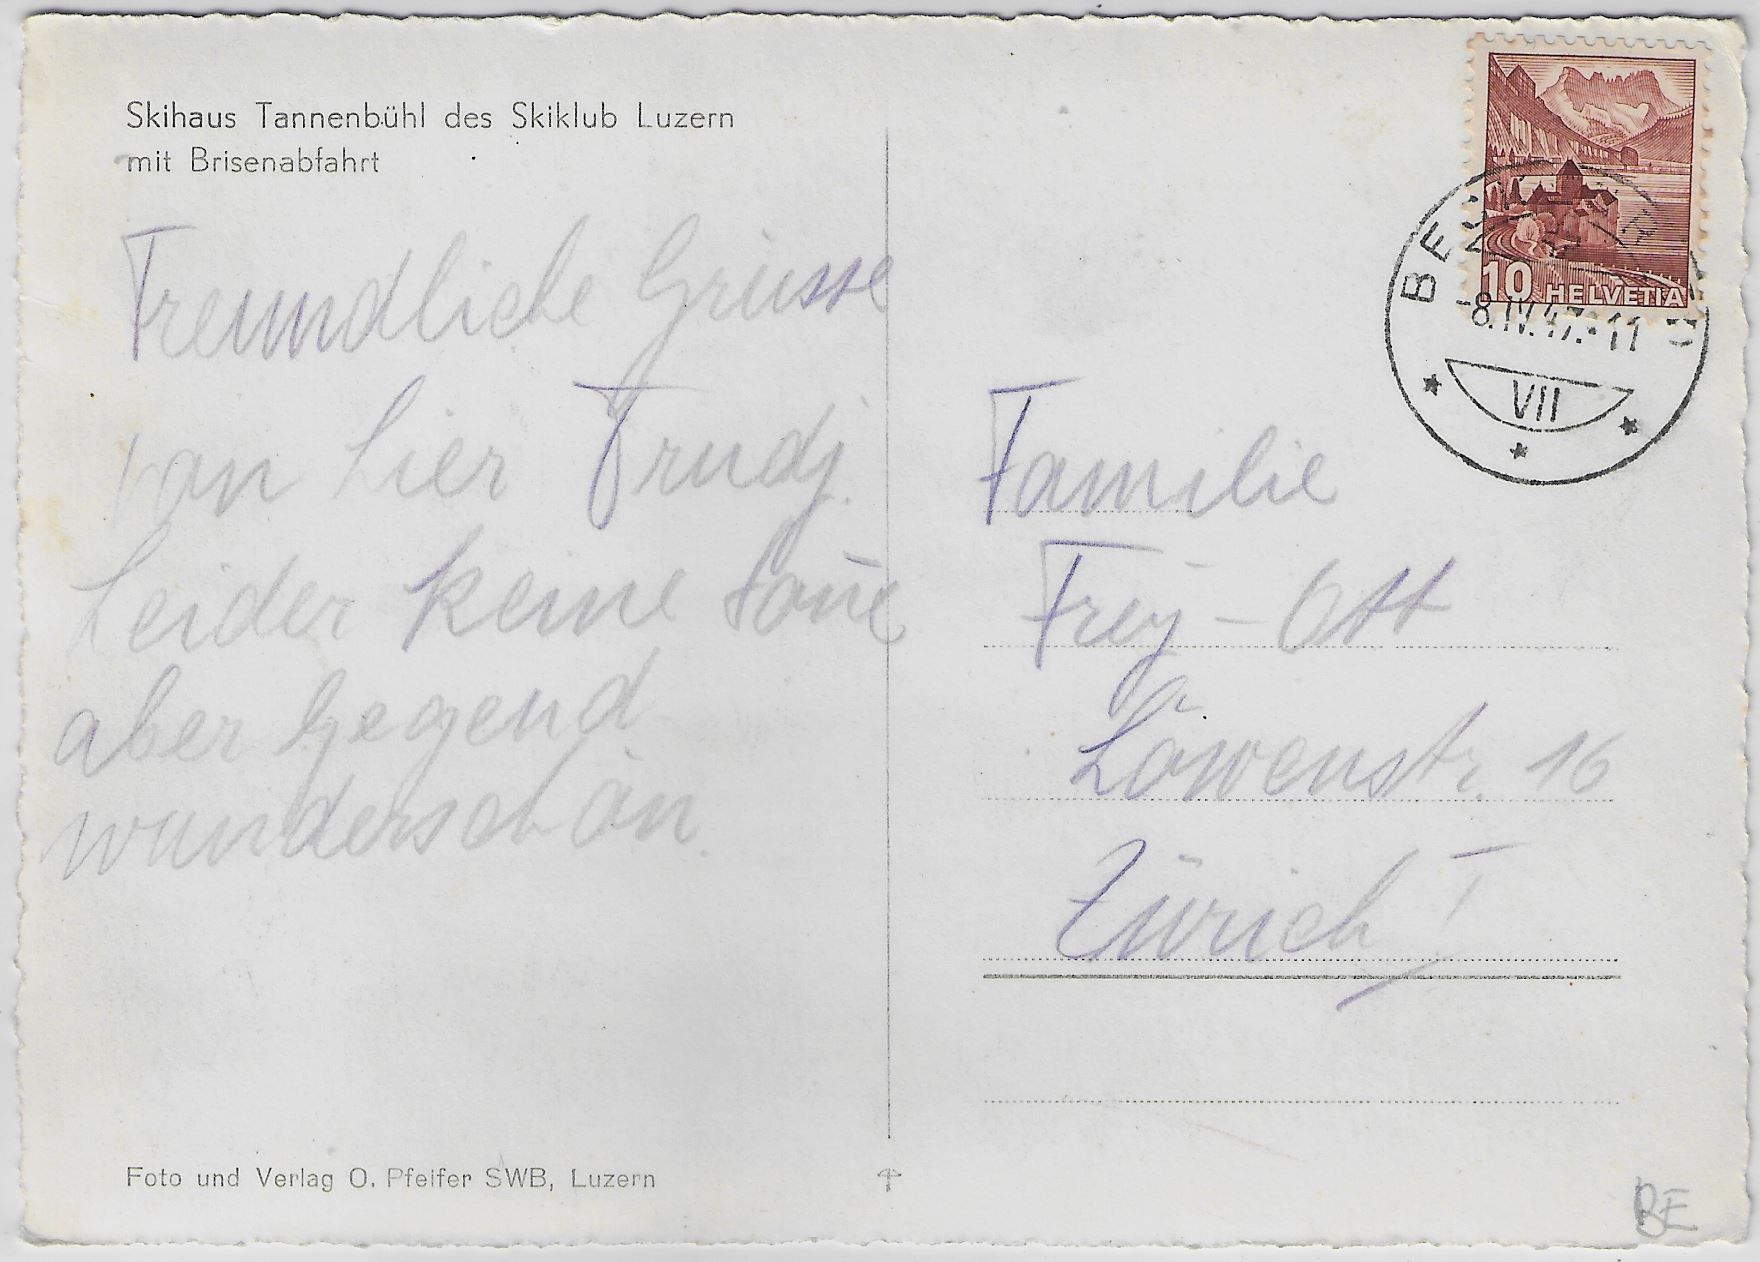 Skihaus Tannenbühl des Skiklub Luzern
mit Brisenabfahrt
Freundliche Grüsse
von hier Trudj.
Leider keine
aber Gegend
wunderschön.
Foto und Verlag O. Pfeifer SWB, Luzern
10 HELVETIA
-8.IV.47.-11
VII
Familie
Frey - Ott
Löwenstr. 16
Zürich I
BE